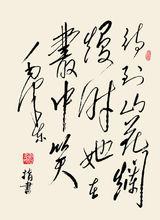 待到山花烂
熳时她在
丛中笑
毛泽东
指书